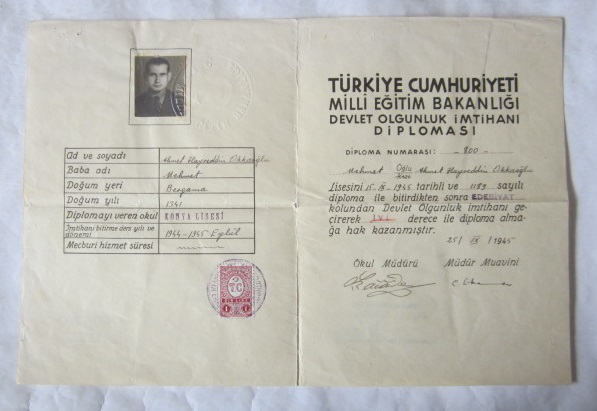 Ad ve soyadı Ahmet Hayreddin Okkaoğlu
Baba adı Mehmet
Doğum yeri Bergama
Doğum yılı 1341
Diplomayı veren okul KONYA LİSESİ
İmtihanı bitirme ders yılı ve dönemi 1944-1945 Eylül
Mecburî hizmet süresi
T.C
BİR LİRA
1 1
TÜRKİYE CUMHURİYETİ
MİLLİ EĞİTİM BAKANLIĞI
DEVLET OLGUNLUK İMTİHANI
DİPLOMASI
DİPLOMA NUMARASI: -800-
Mehmet Oğlu Kızı Ahmet Hayreddin Okkaoğlu
Lisesini 15.IX-1945 tarihli ve 1189 sayılı
diploma ile bitirdikten sonra EDEBİYAT
kolundan Devlet Olgunluk imtihanı ge-
çirerek İYİ derece ile diploma alma-
ğa hak kazanmıştır.
25/ IX /1945
Okul Müdürü Müdür Muavini